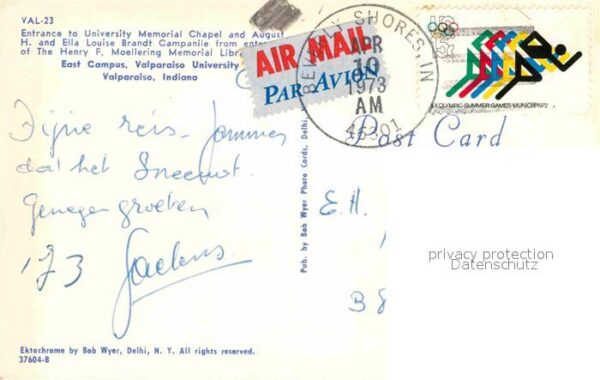 VAL-23
Entrance to University Memorial Chapel and August
H. and Ella Louise Brandt Campanile from entrance
of The Henry F. Moellering Memorial Libr
East Campus, Valparaiso University
Valparaiso, Indiana
AIR MAIL
PAR AVION
BEVERLY SHORES, IN
APR
10
1973
AM
46301
XX OLYMPIC SUMMER GAMES MUNICH 1972
Post Card
Fijne reis. Jammer
dat het Sneeuwt.
groeten
'73
E.H.
B 8
privacy protection
Datenschutz
Pub. by Bob Wyer Photo Cards, Delhi,
Ektachrome by Bob Wyer, Delhi, N. Y. All rights reserved.
37604-B